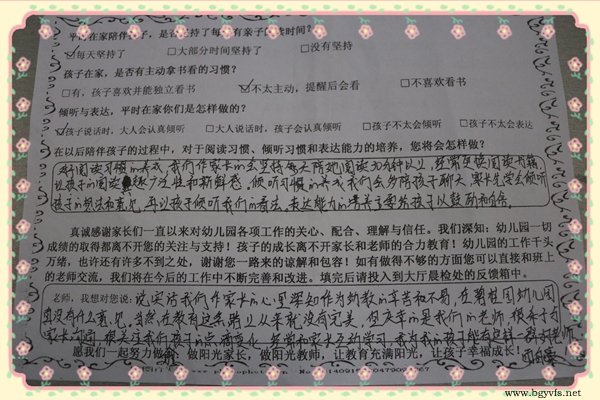 平时在家陪伴孩子，是否坚持了每天有亲子阅读时间？
☑每天坚持了 □大部分时间坚持了 □没有坚持
孩子在家，是否有主动拿书看的习惯？
□有，孩子喜欢并能独立看书 ☑不太主动，提醒后会看 □不喜欢看书
倾听与表达，平时在家你们是怎样做的？
☑孩子说话时，大人会认真倾听 □大人说话时，孩子会认真倾听 □孩子不太会倾听 □孩子不太会表达
在以后陪伴孩子的过程中，对于阅读习惯、倾听习惯和表达能力的培养，您将会怎样做？
阅读习惯的养成，我们作家长的会坚持每天陪她阅读30分钟以上，经常更换阅读书籍
让孩子的阅读趣味性和新鲜感。倾听习惯的养成我们会多陪孩子聊天，家长先学会倾听
孩子的想法和意见，再让孩子倾听我们的看法。表达能力的培养主要给孩子以鼓励和
真诚感谢家长们一直以来对幼儿园各项工作的关心、配合、理解与信任。我们深知：幼儿园一切
成绩的取得都离不开您的关注与支持！孩子的成长离不开家长和老师的合力教育！幼儿园的工作千头
万绪，也许还有许多不到之处，谢谢您一路来的谅解和包容！如有做得不够的方面您可以直接和班上
的老师交流，我们将在今后的工作中不断完善和改进。填完后请投入到大厅晨检处的反馈箱中。
老师，我想对您说：说实话我们作家长的心里深知作为幼教的辛苦和不易，在碧桂园幼儿园
没有什么意见，当然在教育这条路上从来就没有完美，但庆幸的是我们的老师，很善于与
家长沟通，很关注我们孩子的变化，经常和家长互相学习，我为我的孩子能有这样一群好老师
愿我们一起努力做阳光家长，做阳光教师，让教育充满阳光，让孩子幸福成长！
www.bgyvfs.net